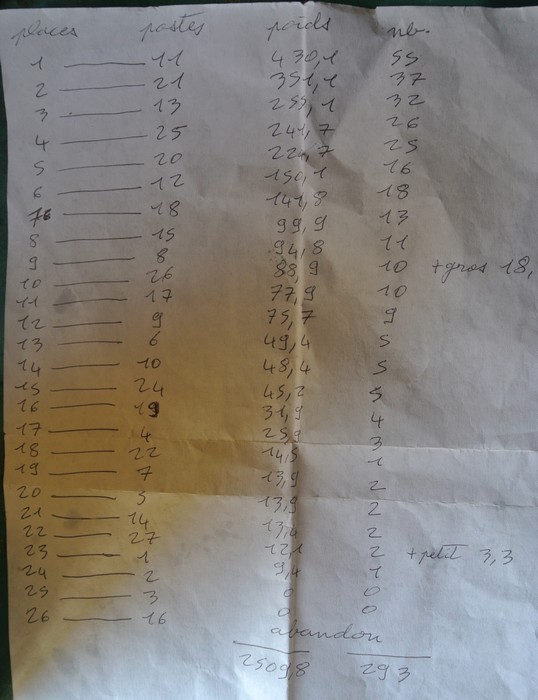 places postes poids nb.
1 — 11 430,1 55
2 — 21 351,1 37
3 — 13 255,1 32
4 — 25 241,7 26
5 — 20 224,7 25
6 — 12 150,1 16
7 — 18 141,8 18
8 — 15 99,9 13
9 — 8 94,8 11
10 — 26 88,9 10 +gros 18,
11 — 17 77,9 10
12 — 9 75,7 9
13 — 6 49,4 5
14 — 10 48,4 5
15 — 24 45,2 5
16 — 19 31,9 4
17 — 4 25,9 3
18 — 22 14,5 1
19 — 7 13,9 2
20 — 5 13,9 2
21 — 14 13,4 2
22 — 27 12,1 2 +petit 3,3
23 — 1 9,4 1
24 — 2 0 0
25 — 3 0 0
26 — 16 abandon
2509,8 293